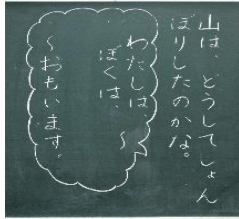 山は、どうしてしょん
ぼりしたのかな。
わたしは
ぼくは、
〜
〜おもいます。